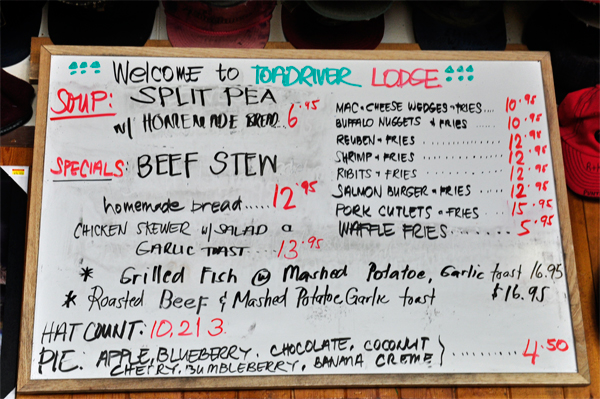 Welcome to TOADRIVER LODGE
SOUP: SPLIT PEA
w/ HOMEMADE BREAD 6.95
SPECIALS: BEEF STEW
homemade bread.... 12.95
CHICKEN SKEWER w/ SALAD &
GARLIC TOAST.... 13.95
MAC & CHEESE WEDGES & FRIES.... 10.95
BUFFALO NUGGETS & FRIES .... 10.95
REUBEN & FRIES .... 12.95
SHRIMP & FRIES .... 12.95
RIBITS & FRIES .... 12.95
SALMON BURGER & FRIES .... 12.95
PORK CUTLETS & FRIES .... 15.95
WAFFLE FRIES....... 5.95
* Grilled Fish @ Mashed Potatoe, Garlic toast 16.95
* Roasted Beef & Mashed Potatoe Garlic toast $16.95
HAT COUNT: 10,213
PIE: APPLE, BLUEBERRY, CHOCOLATE, COCONUT
CHERRY, BUMBLEBERRY, BANANA CREME } ........ 4.50